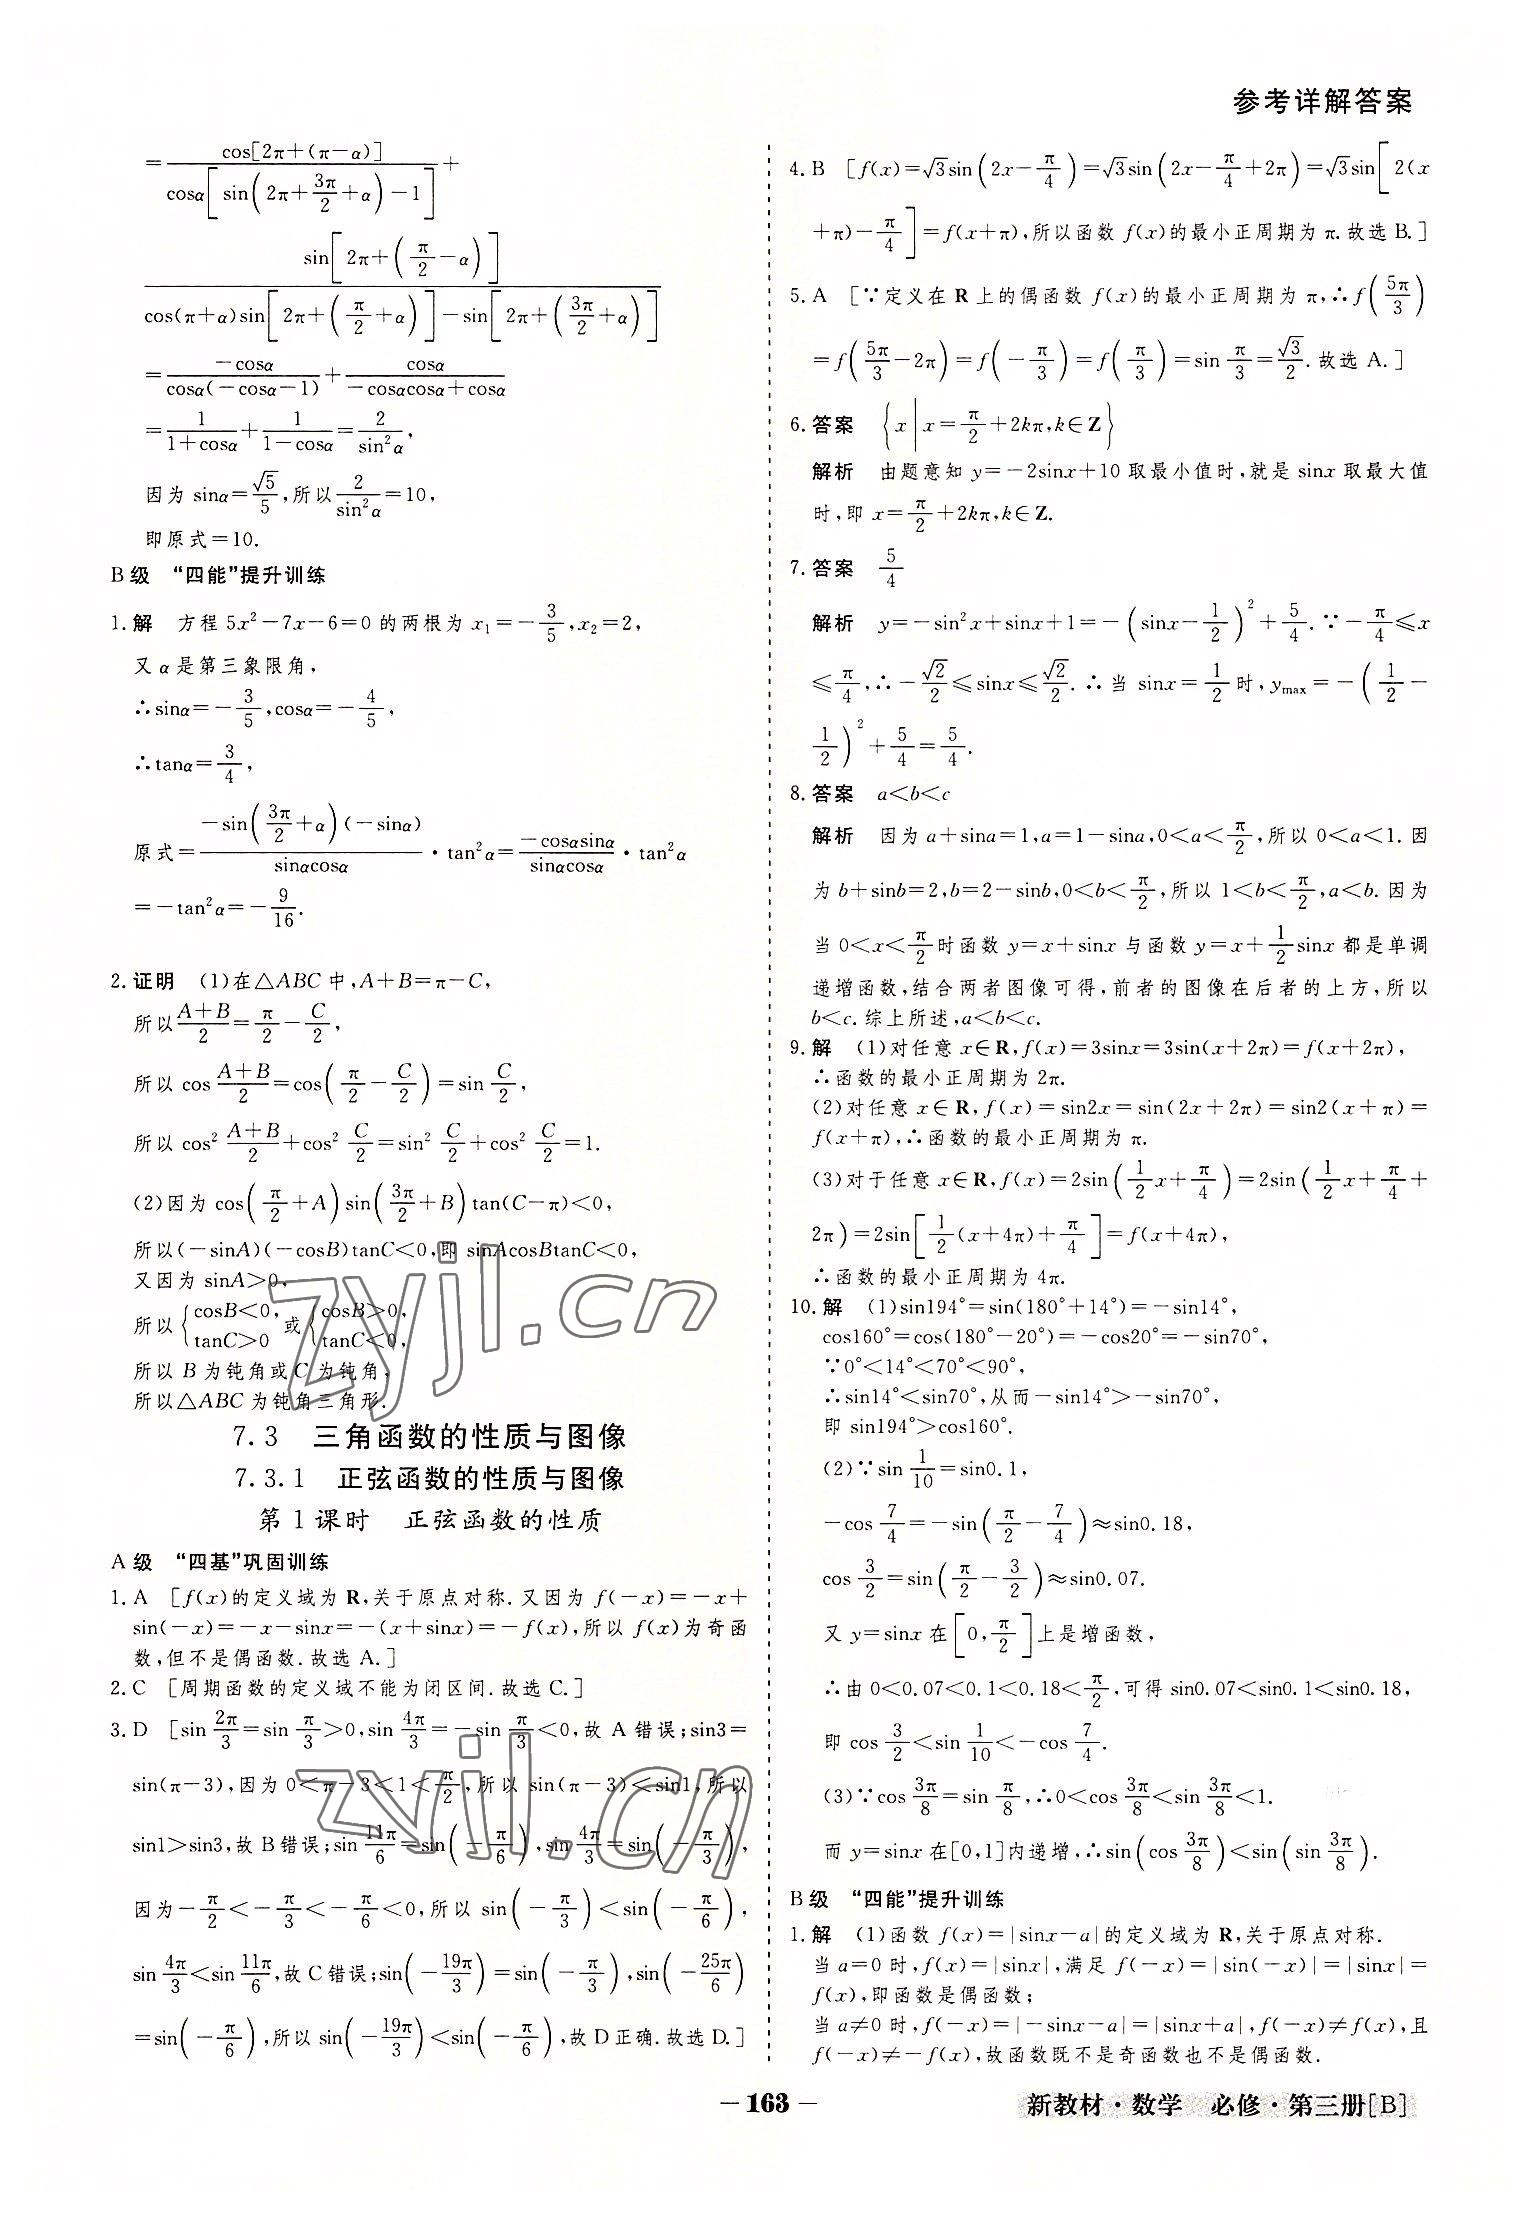 参考详解答案
=cos[2π+(π-α)]/(cosα[sin(2π+3π/2+α)-1])+
sin[2π+(π/2-α)]/(cos(π+α)sin[2π+(π/2+α)]-sin[2π+(3π/2+α)])
=-cosα/(cosα(-cosα-1))+cosα/(-cosαcosα+cosα)
=1/(1+cosα)+1/(1-cosα)=2/sin²α,
因为 sinα=√5/5,所以2/sin²α=10,
即原式=10.
B级 “四能”提升训练
1.解 方程 5x²-7x-6=0 的两根为 x₁=-3/5,x₂=2,
又 α 是第三象限角,
∴sinα=-3/5,cosα=-4/5,
∴tanα=3/4,
原式=(-sin(3π/2+α)(-sinα))/(sinαcosα)·tan²α=(-cosαsinα)/(sinαcosα)·tan²α
=-tan²α=-9/16.
2.证明 (1)在△ABC 中,A+B=π-C,
所以(A+B)/2=π/2-C/2,
所以 cos(A+B)/2=cos(π/2-C/2)=sin C/2,
所以 cos²(A+B)/2+cos² C/2=sin² C/2+cos² C/2=1.
(2)因为 cos(π/2+A)sin(3π/2+B)tan(C-π)<0,
所以(-sinA)(-cosB)tanC<0,即 sinAcosBtanC<0,
又因为 sinA>0,
所以{cosB<0,tanC>0 或{cosB>0,tanC<0,
所以 B 为钝角或 C 为钝角,
所以△ABC 为钝角三角形.
7.3 三角函数的性质与图像
7.3.1 正弦函数的性质与图像
第1课时 正弦函数的性质
A级 “四基”巩固训练
1.A [f(x)的定义域为 R,关于原点对称.又因为 f(-x)=-x+
sin(-x)=-x-sinx=-(x+sinx)=-f(x),所以 f(x)为奇函
数,但不是偶函数.故选 A.]
2.C [周期函数的定义域不能为闭区间.故选 C.]
3.D [sin 2π/3=sin π/3>0,sin 4π/3=-sin π/3<0,故 A 错误;sin3=
sin(π-3),因为 0<π-3<1<π/2,所以 sin(π-3)<sin1,所以
sin1>sin3,故 B 错误;sin 11π/6=sin(-π/6),sin 4π/3=sin(-π/3),
因为-π/2<-π/3<-π/6<0,所以 sin(-π/3)<sin(-π/6),
sin 4π/3<sin 11π/6,故 C 错误;sin(-19π/3)=sin(-π/3),sin(-25π/6)
=sin(-π/6),所以 sin(-19π/3)<sin(-π/6),故 D 正确.故选 D.]
4.B [f(x)=√3sin(2x-π/4)=√3sin(2x-π/4+2π)=√3sin[2(x
+π)-π/4]=f(x+π),所以函数 f(x)的最小正周期为 π.故选 B.]
5.A [∵定义在 R 上的偶函数 f(x)的最小正周期为 π,∴f(5π/3)
=f(5π/3-2π)=f(-π/3)=f(π/3)=sin π/3=√3/2.故选 A.]
6.答案 {x|x=π/2+2kπ,k∈Z}
解析 由题意知 y=-2sinx+10 取最小值时,就是 sinx 取最大值
时,即 x=π/2+2kπ,k∈Z.
7.答案 5/4
解析 y=-sin²x+sinx+1=-(sinx-1/2)²+5/4.∵-π/4≤x
≤π/4,∴-√2/2≤sinx≤√2/2.∴当 sinx=1/2时,ymax=-(1/2-
1/2)²+5/4=5/4.
8.答案 a<b<c
解析 因为 a+sina=1,a=1-sina,0<a<π/2,所以 0<a<1.因
为 b+sinb=2,b=2-sinb,0<b<π/2,所以 1<b<π/2,a<b.因为
当 0<x<π/2时函数 y=x+sinx 与函数 y=x+1/2sinx 都是单调
递增函数,结合两者图像可得,前者的图像在后者的上方,所以
b<c.综上所述,a<b<c.
9.解 (1)对任意 x∈R,f(x)=3sinx=3sin(x+2π)=f(x+2π),
∴函数的最小正周期为 2π.
(2)对任意 x∈R,f(x)=sin2x=sin(2x+2π)=sin2(x+π)=
f(x+π),∴函数的最小正周期为 π.
(3)对于任意 x∈R,f(x)=2sin(1/2x+π/4)=2sin(1/2x+π/4+
2π)=2sin[1/2(x+4π)+π/4]=f(x+4π),
∴函数的最小正周期为 4π.
10.解 (1)sin194°=sin(180°+14°)=-sin14°,
cos160°=cos(180°-20°)=-cos20°=-sin70°,
∵0°<14°<70°<90°,
∴sin14°<sin70°,从而-sin14°>-sin70°,
即 sin194°>cos160°.
(2)∵sin 1/10=sin0.1,
-cos 7/4=-sin(π/2-7/4)≈sin0.18,
cos 3/2=sin(π/2-3/2)≈sin0.07.
又 y=sinx 在[0,π/2]上是增函数,
∴由 0<0.07<0.1<0.18<π/2,可得 sin0.07<sin0.1<sin0.18,
即 cos 3/2<sin 1/10<-cos 7/4.
(3)∵cos 3π/8=sin π/8,∴0<cos 3π/8<sin 3π/8<1.
而 y=sinx 在[0,1]内递增,∴sin(cos 3π/8)<sin(sin 3π/8).
B级 “四能”提升训练
1.解 (1)函数 f(x)=|sinx-a|的定义域为 R,关于原点对称.
当 a=0 时,f(x)=|sinx|,满足 f(-x)=|sin(-x)|=|sinx|=
f(x),即函数是偶函数;
当 a≠0 时,f(-x)=|-sinx-a|=|sinx+a|,f(-x)≠f(x),且
f(-x)≠-f(x),故函数既不是奇函数也不是偶函数.
-163-
新教材·数学 必修·第三册[B]
zyjl.cn
zyjl.cn